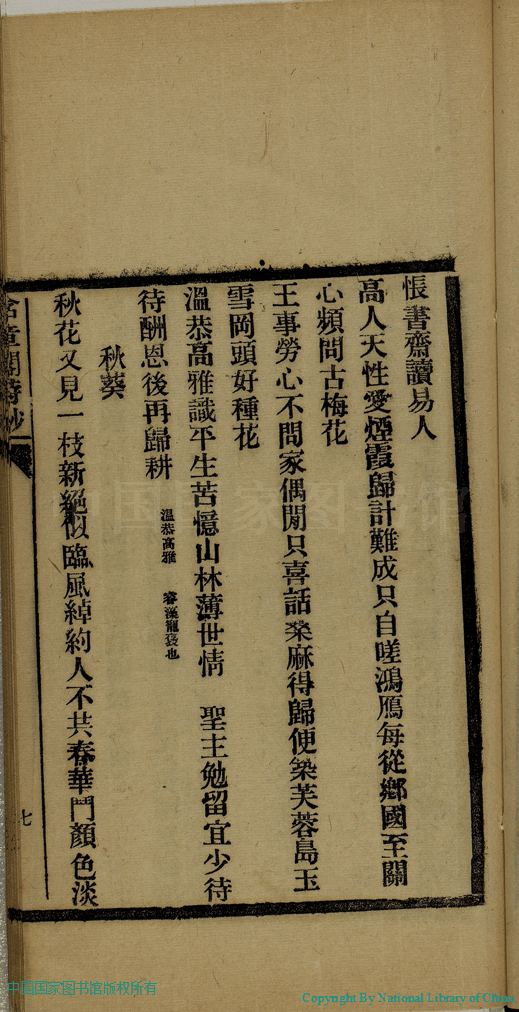 悵書齋讀易人
高人天性愛煙霞歸計難成只自嗟鴻鴈每從鄉國至關
心頻問古梅花
王事勞心不問家偶閒只喜話桑麻得歸便築芙蓉島玉
雪岡頭好種花
溫恭高雅識平生苦憶山林薄世情 聖主勉留宜少待
待酬恩後再歸耕 溫恭高雅 睿藻寵褒也
秋葵
秋花又見一枝新絕似臨風綽約人不共春華鬥顏色淡
含章閣詩鈔
七
中国国家图书馆版权所有
Copyright By National Library of China